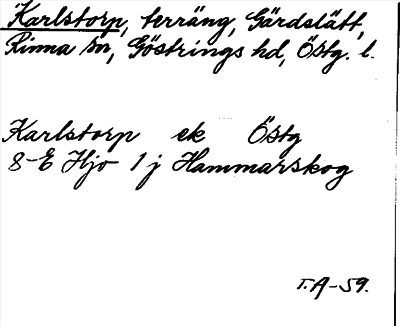 Karlstorp, terräng, Gärdslätt,
Rinna sn, Göstrings hd, Östg. l.
Karlstorp ek Östg
8-E Hjo 1 j Hammarskog
T.A-59.